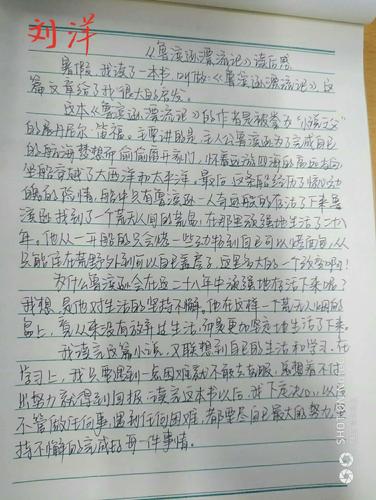 刘洋
《鲁滨逊漂流记》读后感
暑假,我读了一本书,叫做《鲁滨逊漂流记》这
篇文章给了我很大的启发。
这本《鲁滨逊漂流记》的作者是被誉为"小说之父"
的丹尼尔·笛福。主要讲的是:主人公鲁滨逊为了完成自己
的航海梦想而偷偷离开家们,怀着远游四海的高远志向
坐船穿越了大西洋和太平洋。最后这条船经历了惊心动
魄的险情,船中只有鲁滨逊一人奇迹般的存活了下来鲁
滨逊找到了一个荒无人间的荒岛,在那里顽强地生活了二十八
年。他从一开始的只会搭一些 到自己可以 ,从
只能住在荒野外到可以自己盖房子,这是多大的一个改变啊!
为什么鲁滨逊会在这二十八年中顽强地存活下来呢?
我想是他对生活的坚持不懈。他在这样一个荒无人烟的
岛上,看从来没有放弃过生活,而是更加坚定地生活了下来。
我读完这篇小说,又联想到自己的生活和学习。在
学习上,我只要遇到一点困难就不敢去克服,总想着不付
出努力就得到回报。读完这本书以后,我下定决心,以后
不管做任何事,遇到任何困难,都要尽自己最大的努力坚
持不懈的完成好每一件事情。
SHOT ON